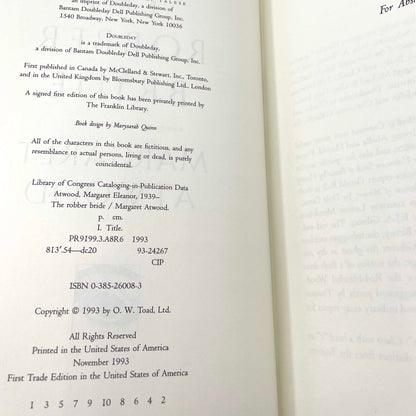 an imprint of Doubleday, a division of
Bantam Doubleday Dell Publishing Group, Inc.
1540 Broadway, New York, New York 10036
DOUBLEDAY
is a trademark of Doubleday,
a division of Bantam Doubleday Dell Publishing Group, Inc.
First published in Canada by McClelland & Stewart, Inc., Toronto,
and in the United Kingdom by Bloomsbury Publishing Ltd., London
A signed first edition of this book has been privately printed by
The Franklin Library.
Book design by Marysarah Quinn
All of the characters in this book are fictitious, and any
resemblance to actual persons, living or dead, is purely
coincidental.
Library of Congress Cataloging-in-Publication Data
Atwood, Margaret Eleanor, 1939–
The robber bride / Margaret Atwood.
p. cm.
I. Title.
PR9199.3.A8R6 1993
813'.54—dc20 93-24267
CIP
ISBN 0-385-26008-3
Copyright © 1993 by O. W. Toad, Ltd.
All Rights Reserved
Printed in the United States of America
November 1993
First Trade Edition in the United States of America
1 3 5 7 9 10 8 6 4 2
For